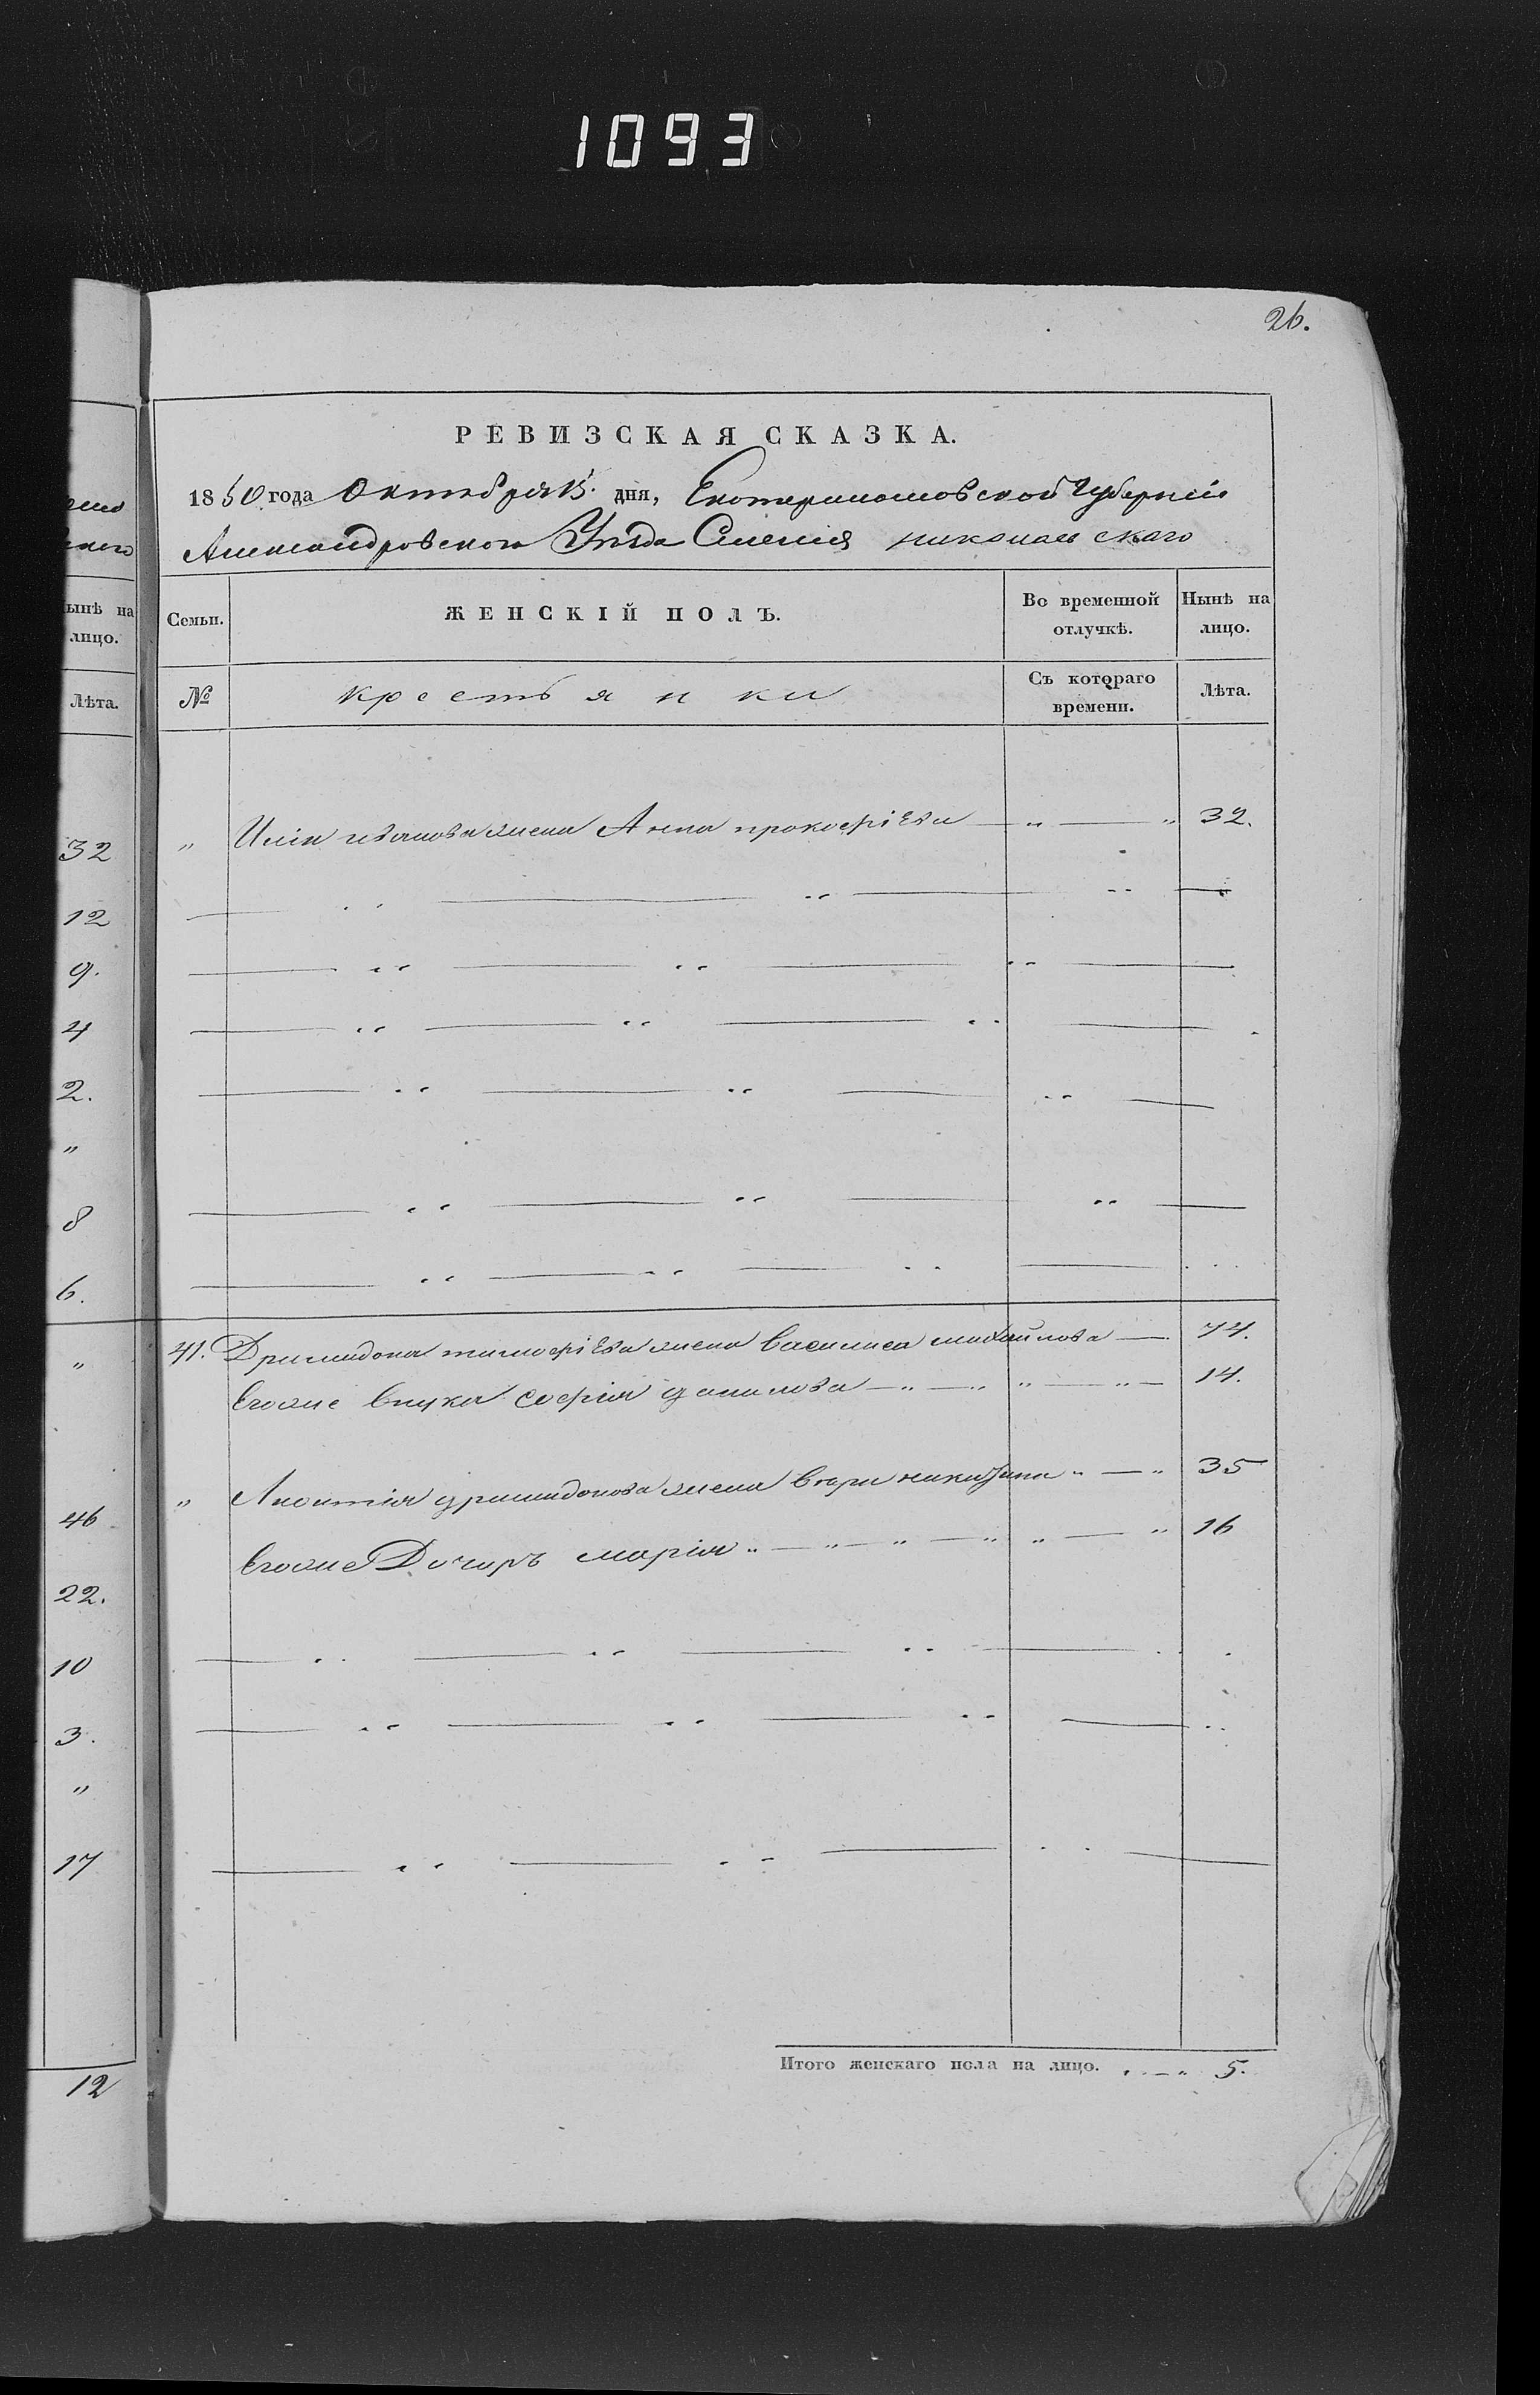 1093
26.
РЕВИЗСКАЯ СКАЗКА.
1850 года Октября 15. дня, Екатеринославской Губернии
Александровского Уезда Селения николаевскаго
Семьи.
ЖЕНСКІЙ ПОЛЪ.
Во временной отлучкѣ.
Нынѣ на лицо.
№
крестьянки
Съ котораго времени.
Лѣта.
" Илии иванова жена Анна прокофіева — " — " 32.
41. жена василиса михайлова — 74.
Егоже внука софія данилова — " — " " — " — 14.
" жена никитина " — " 35
Егоже Дочеръ марія " — " — " — " " — " 16
Итого женскаго пола на лицо. 5.
ынѣ на
лицо.
Лѣта.
32
12
9.
4
2.
"
8
6.
"
46
22.
10
3.
"
17
12